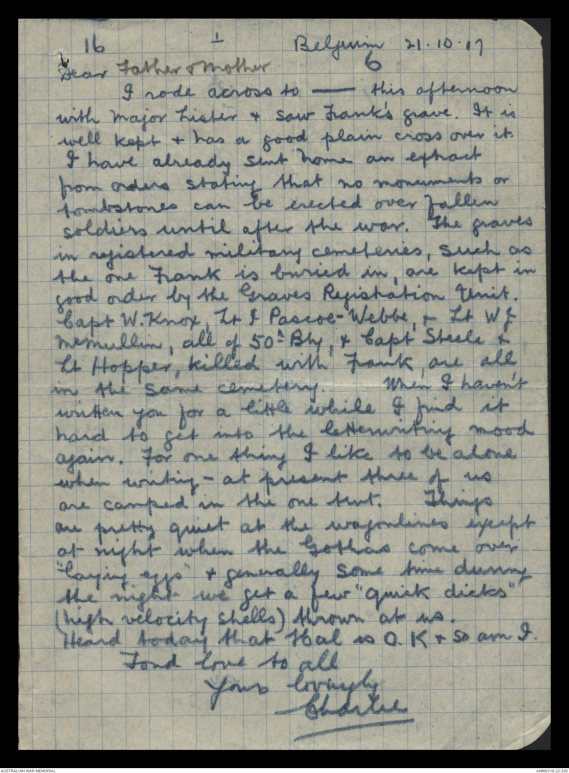 16 1 Belgium 21.10.17
6
Dear Father & Mother
I rode across to —— this afternoon
with Major Lister & saw Frank's grave. It is
well kept & has a good plain cross over it.
I have already sent home an extract
from orders stating that no monuments or
tombstones can be erected over fallen
soldiers until after the war. The graves
in registered military cemeteries, such as
the one Frank is buried in, are kept in
good order by the Graves Registration Unit.
Capt W. Knox, Lt I Pascoe-Webbe, & Lt W J
McMullin, all of 50th Bty, & Capt Steele &
Lt Hopper, killed with Frank, are all
in the same cemetery. When I haven't
written you for a little while I find it
hard to get into the letterwriting mood
again. For one thing I like to be alone
when writing – at present three of us
are camped in the one tent. Things
are pretty quiet at the wagonlines except
at night when the Gothas come over
"laying eggs" & generally some time during
the night we get a few "quick dicks"
(high velocity shells) thrown at us.
Heard today that Hal is O.K & so am I.
Fond love to all
Yours lovingly
Charlie
AUSTRALIAN WAR MEMORIAL